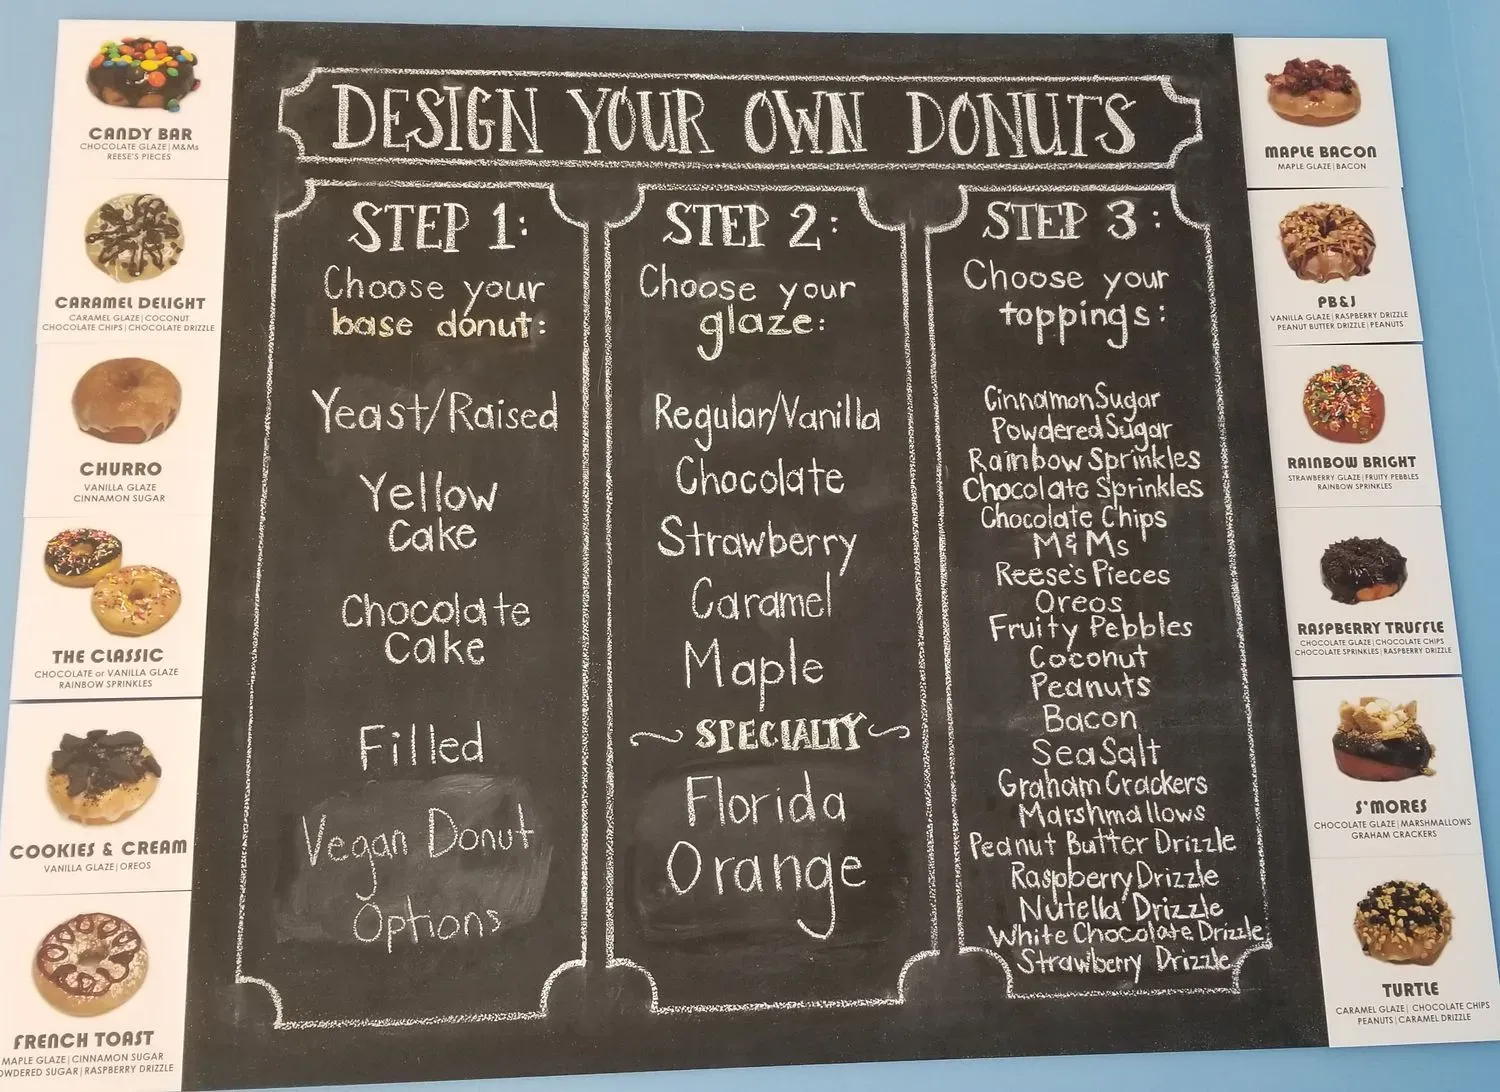 DESIGN YOUR OWN DONUTS
STEP 1:
Choose your
base donut:
Yeast/Raised
Yellow
Cake
Chocolate
Cake
Filled
Vegan Donut
Options
STEP 2:
Choose your
glaze:
Regular/Vanilla
Chocolate
Strawberry
Caramel
Maple
SPECIALTY
Florida
Orange
STEP 3:
Choose your
toppings:
Cinnamon Sugar
Powdered Sugar
Rainbow Sprinkles
Chocolate Sprinkles
Chocolate Chips
M&Ms
Reese's Pieces
Oreos
Fruity Pebbles
Coconut
Peanuts
Bacon
Sea Salt
Graham Crackers
Marshmallows
Peanut Butter Drizzle
Raspberry Drizzle
Nutella Drizzle
White Chocolate Drizzle
Strawberry Drizzle
CANDY BAR
CHOCOLATE GLAZE | M&Ms
REESE'S PIECES
CARAMEL DELIGHT
CARAMEL GLAZE | COCONUT
CHOCOLATE CHIPS | CHOCOLATE DRIZZLE
CHURRO
VANILLA GLAZE
CINNAMON SUGAR
THE CLASSIC
CHOCOLATE or VANILLA GLAZE
RAINBOW SPRINKLES
COOKIES & CREAM
VANILLA GLAZE | OREOS
FRENCH TOAST
MAPLE GLAZE | CINNAMON SUGAR
OWDERED SUGAR | RASPBERRY DRIZZLE
MAPLE BACON
MAPLE GLAZE | BACON
PB&J
VANILLA GLAZE | RASPBERRY DRIZZLE
PEANUT BUTTER DRIZZLE | PEANUTS
RAINBOW BRIGHT
STRAWBERRY GLAZE | FRUITY PEBBLES
RAINBOW SPRINKLES
RASPBERRY TRUFFLE
CHOCOLATE GLAZE | CHOCOLATE CHIPS
CHOCOLATE SPRINKLES | RASPBERRY DRIZZLE
S'MORES
CHOCOLATE GLAZE | MARSHMALLOWS
GRAHAM CRACKERS
TURTLE
CARAMEL GLAZE | CHOCOLATE CHIPS
PEANUTS | CARAMEL DRIZZLE